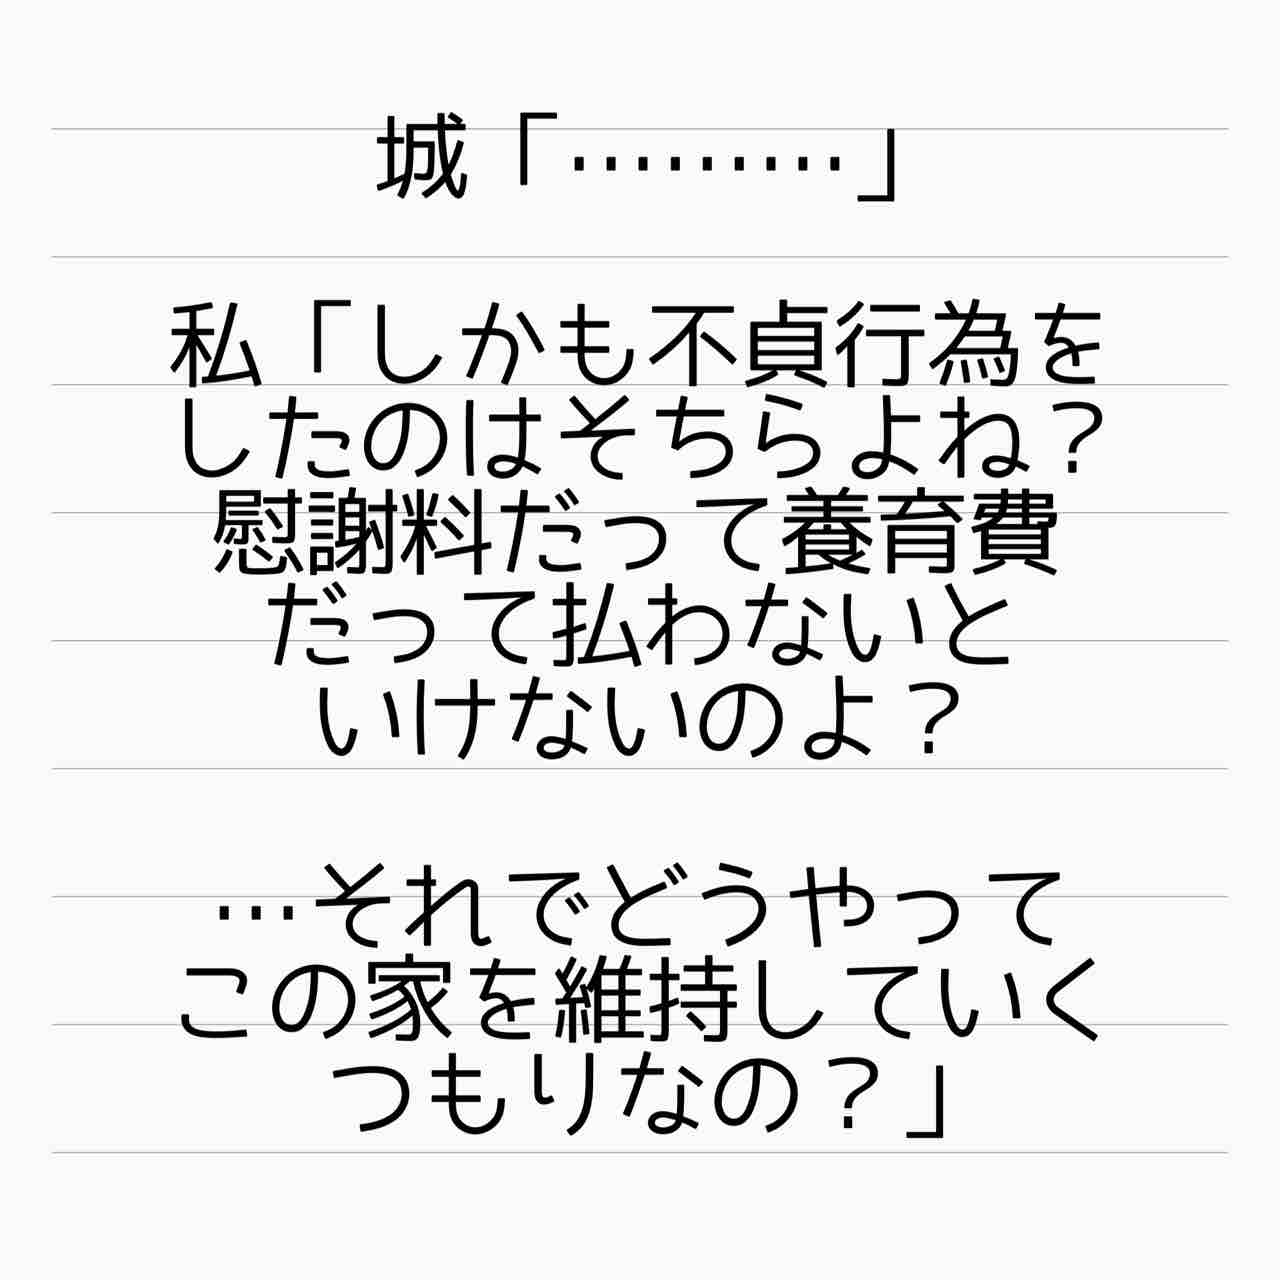 城「………」
私「しかも不貞行為を
したのはそちらよね？
慰謝料だって養育費
だって払わないと
いけないのよ？
…それでどうやって
この家を維持していく
つもりなの？」